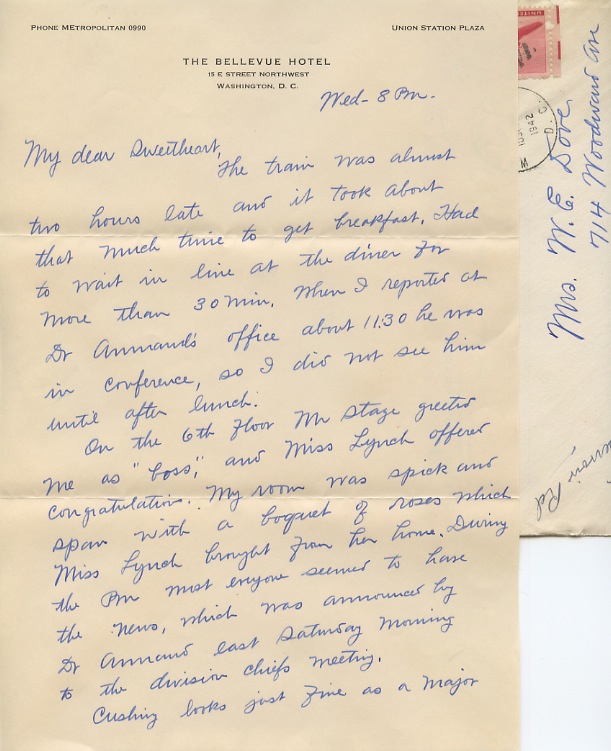 PHONE METROPOLITAN 0990
UNION STATION PLAZA
THE BELLEVUE HOTEL
15 E STREET NORTHWEST
WASHINGTON, D. C.
Wed- 8 Pm.
My dear Sweetheart,
The train was almost
two hours late and it took about
that much time to get breakfast. Had
to wait in line at the diner for
more than 30 min. When I reported at
Dr Annand's office about 11:30 he was
in conference, so I did not see him
until after lunch.
On the 6th floor Mr Stage greeted
me as "boss", and Miss Lynch offered
congratulation. My room was spick and
span with a boquet of roses which
Miss Lynch brought from her home. During
the Pm most everyone seemed to have
the news, which was announced by
Dr Annand last Saturday morning
to the division chiefs meeting.
Cushing looks just fine as a Major
1942
D. C.
Mrs. W. E. Dove
714 Woodward Ave